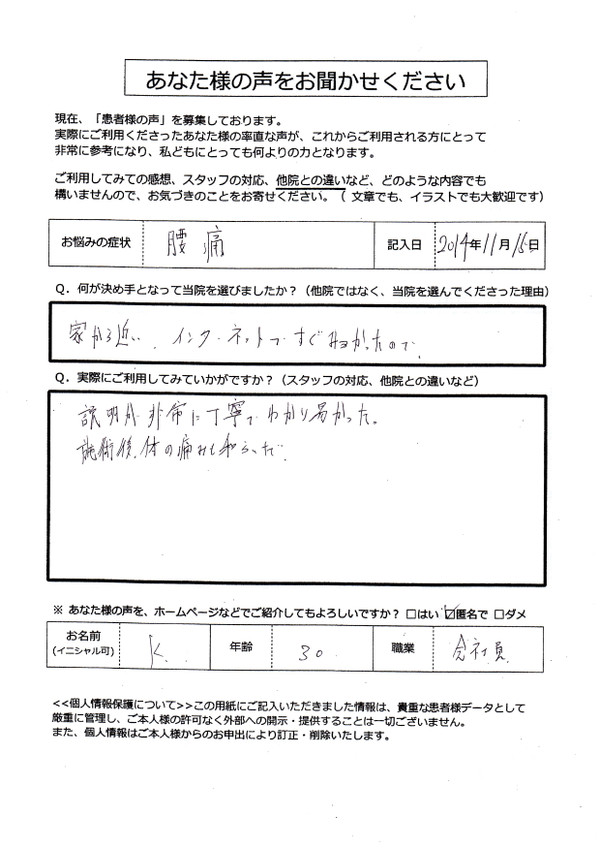 あなた様の声をお聞かせください
現在、「患者様の声」を募集しております。
実際にご利用くださったあなた様の率直な声が、これからご利用される方にとって
非常に参考になり、私どもにとっても何よりの力となります。
ご利用してみての感想、スタッフの対応、他院との違いなど、どのような内容でも
構いませんので、お気づきのことをお寄せください。（ 文章でも、イラストでも大歓迎です）
お悩みの症状 腰痛 記入日 2014年11月15日
Q．何が決め手となって当院を選びましたか？（他院ではなく、当院を選んでくださった理由）
家から近い、インターネットですぐみつかったので、
Q．実際にご利用してみていかがですか？（スタッフの対応、他院との違いなど）
説明が非常に丁寧でわかり易かった。
施術後、体の痛みも和らいだ。
※ あなた様の声を、ホームページなどでご紹介してもよろしいですか？ □はい ☑匿名で □ダメ
お名前 K. 年齢 30 職業 会社員
(イニシャル可)
<<個人情報保護について>>この用紙にご記入いただきました情報は、貴重な患者様データとして
厳重に管理し、ご本人様の許可なく外部への開示・提供することは一切ございません。
また、個人情報はご本人様からのお申出により訂正・削除いたします。